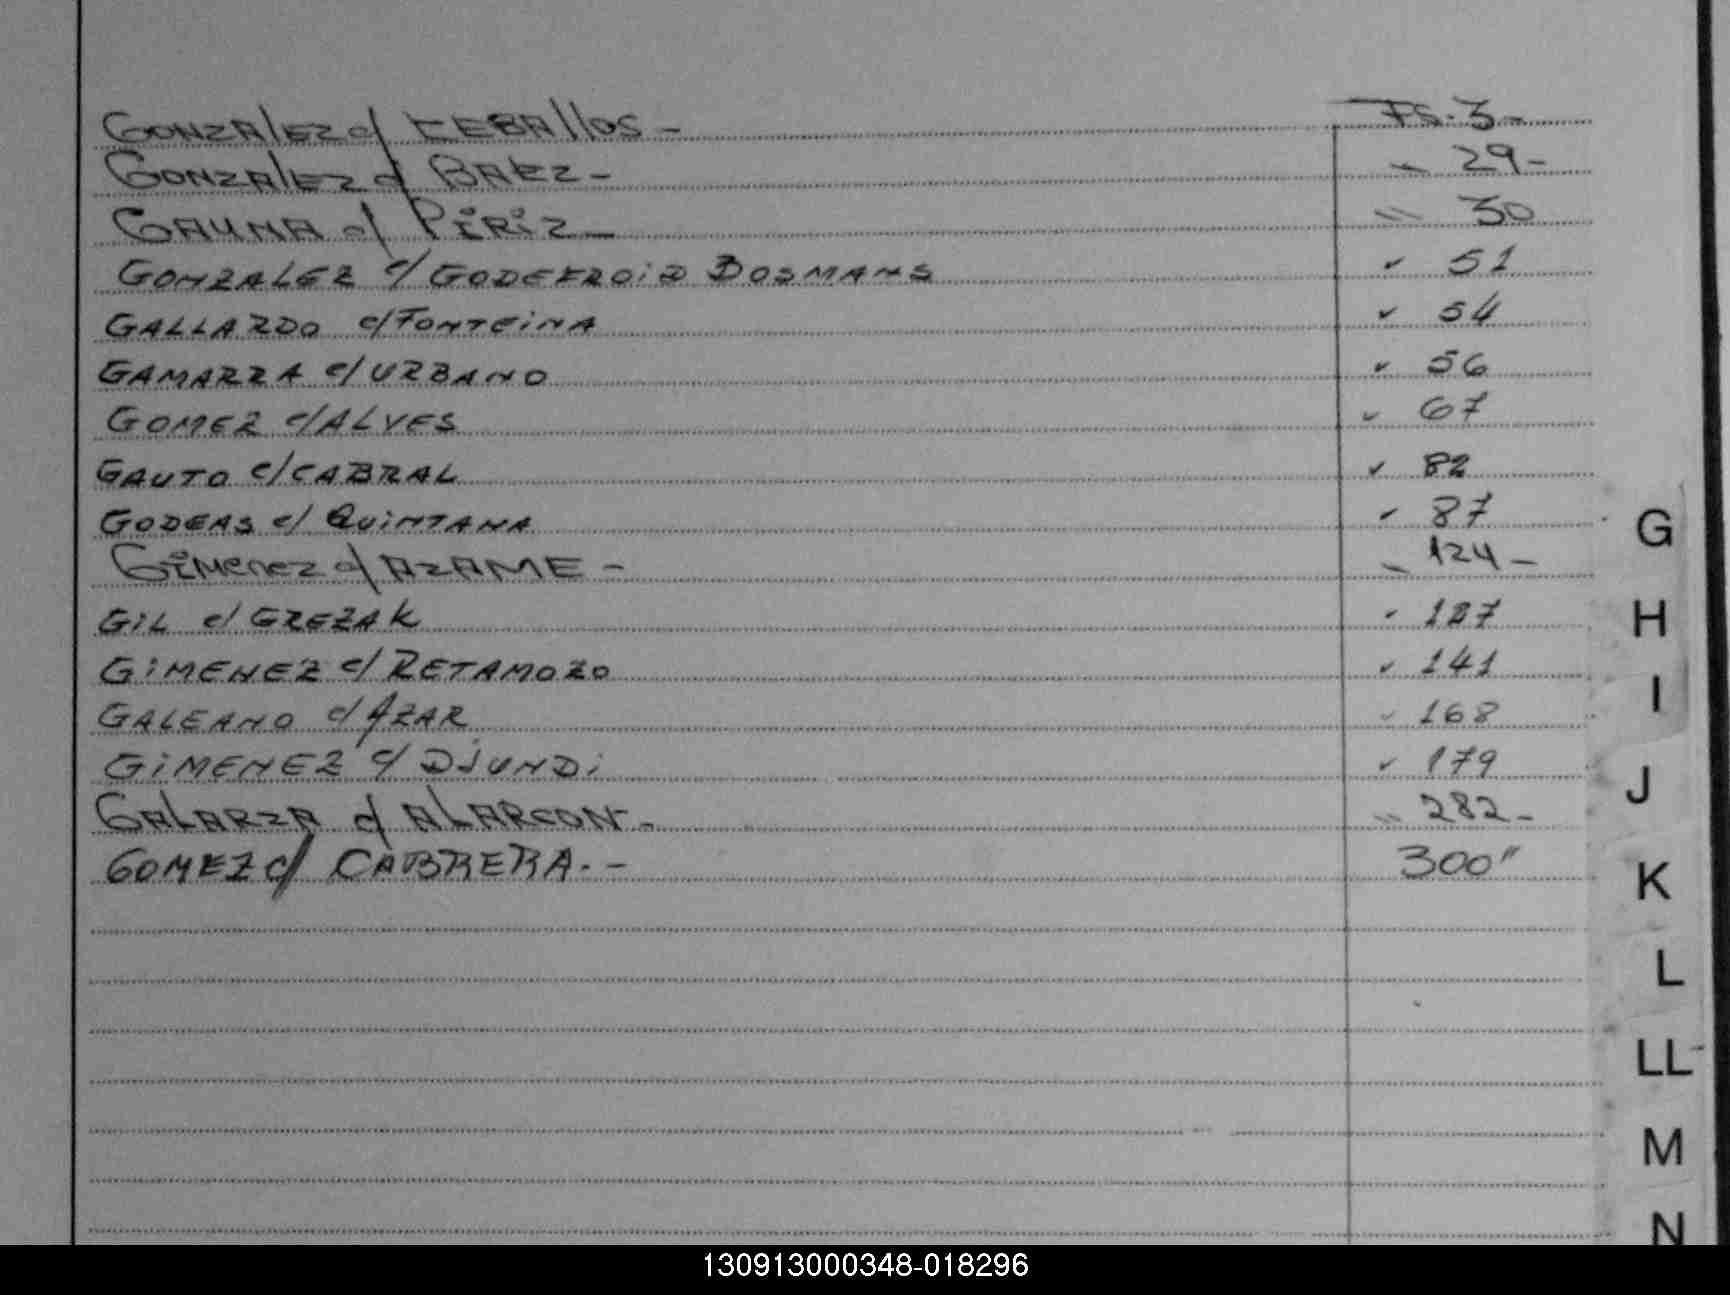 GONZALEZ c/ CEBALLOS - FS. 3 -
GONZALEZ c/ BAEZ - " 29 -
GAUNA c/ PÍRIZ - " 30
GONZALEZ c/ GODEFROID BOSMANS " 51
GALLARDO c/ FONTEINA " 54
GAMARRA c/ URBANO " 56
GOMEZ c/ ALVES " 67
GAUTO c/ CABRAL " 82
GODEAS c/ QUINTANA " 87
GIMENEZ c/ AZAME - " 124 -
GIL c/ GREZAK " 127
GIMENEZ c/ RETAMOZO " 141
GALEANO c/ AZAR " 168
GIMENEZ c/ DJUNDI " 179
GALARZA c/ ALARCON - " 282 -
GOMEZ c/ CABRERA. - 300"
G
H
I
J
K
L
LL
M
N
130913000348-018296